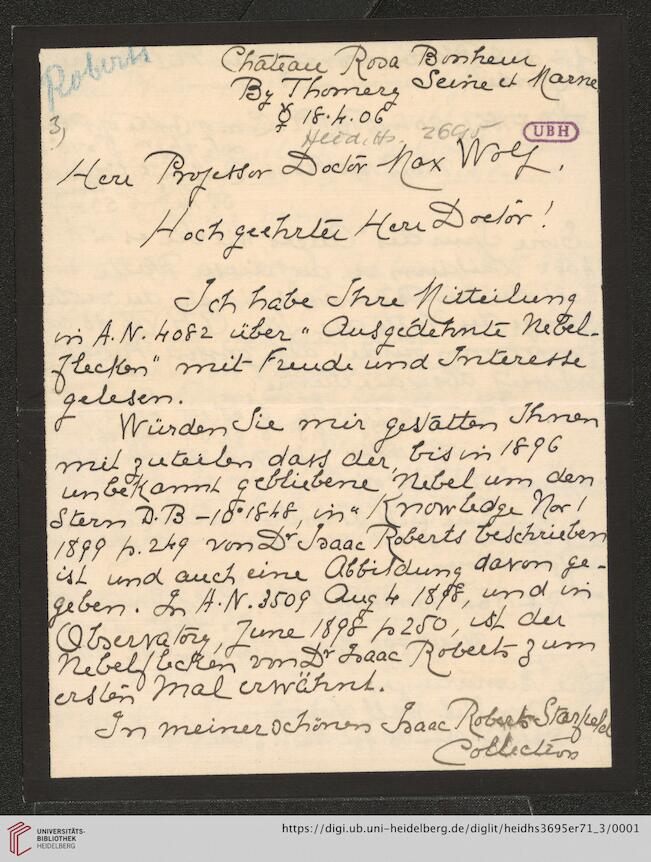 Roberts
3,
Château Rosa Bonheur
By Thomery Seine et Marne
☿ 18.4.06
Heid. Hs. 3695
UBH
Herr Professor Doctor Max Wolf,
Hochgeehrter Herr Doctor!
Ich habe Ihre Mitteilung
in A.N. 4082 über „Ausgedehnte Nebel-
flecken" mit Freude und Interesse
gelesen.
Würden Sie mir gestatten Ihnen
mit zuteilen dass der, bis in 1896
unbekannt gebliebene Nebel um den
Stern D.B –10° 1848, in „Knowledge Nov 1
1899 p. 249 von Dr Isaac Roberts beschrieben
ist und auch eine Abbildung davon ge-
geben. In A.N. 3509 Aug 4 1898, und in
Observatory, June 1898 p 250, ist der
Nebelflecken von Dr Isaac Roberts zum
ersten Mal erwähnt.
In meiner schönen Isaac Roberts Starfield
Collection
UNIVERSITÄTS-
BIBLIOTHEK
HEIDELBERG
https://digi.ub.uni-heidelberg.de/diglit/heidhs3695er71_3/0001